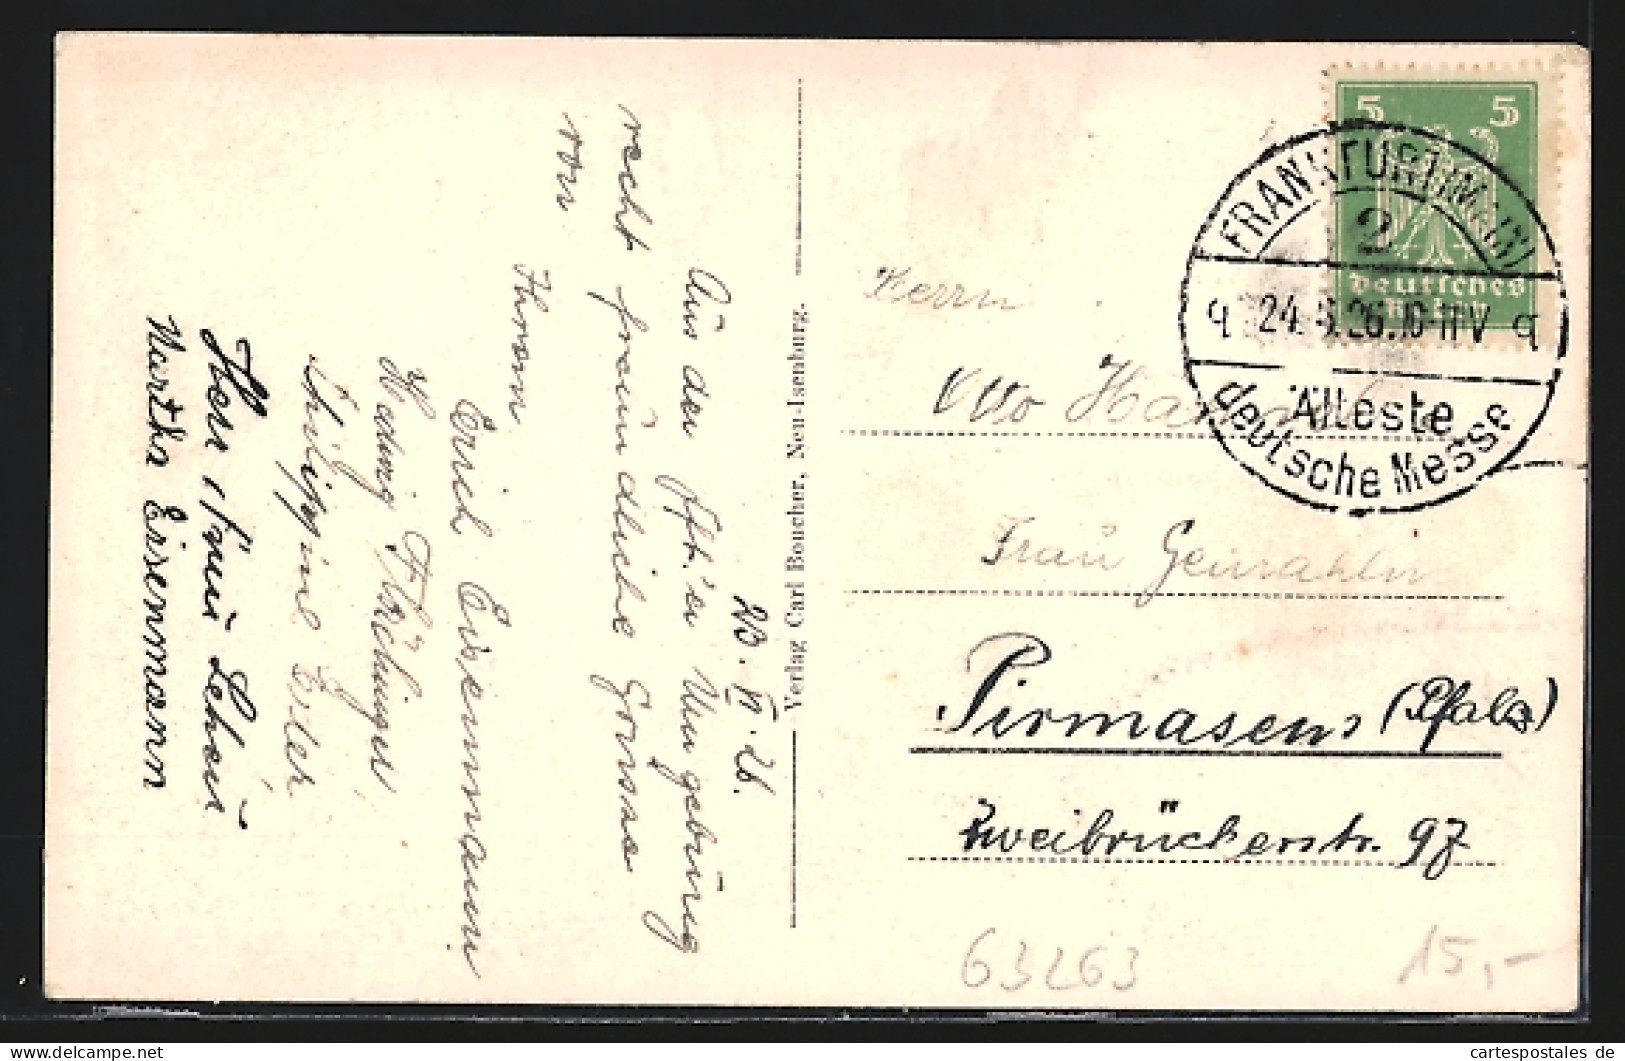 20. VI. 26.
Aus der Offb.'er Umgebung
recht freundliche Grüsse
von
Ihrem
Erich Eisenmann
Hedwig
Philippine Eisler
Herr u. Frau
Martha Eisenmann
Verlag Carl Boucher, Neu-Isenburg.
5 5
Deutsches
Reich
FRANKFURT (MAIN)
2
24. 6. 26. 10-11 V
Älteste
deutsche Messe
Herrn
Otto
Frau Gemahlin
Pirmasens (Pfalz)
Zweibrückerstr. 97
63263
15,-
cartespostales de